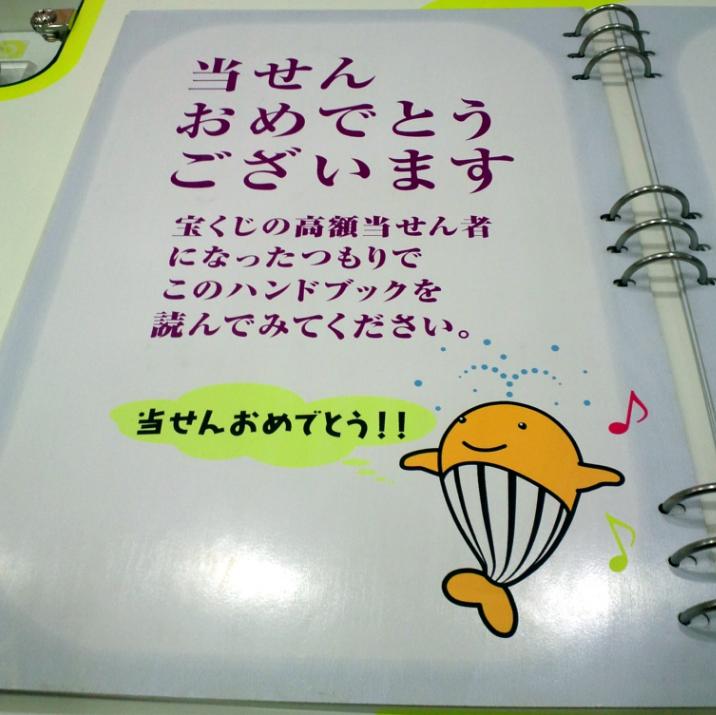 当せん
おめでとう
ございます
宝くじの高額当せん者
になったつもりで
このハンドブックを
読んでみてください。
当せんおめでとう!!